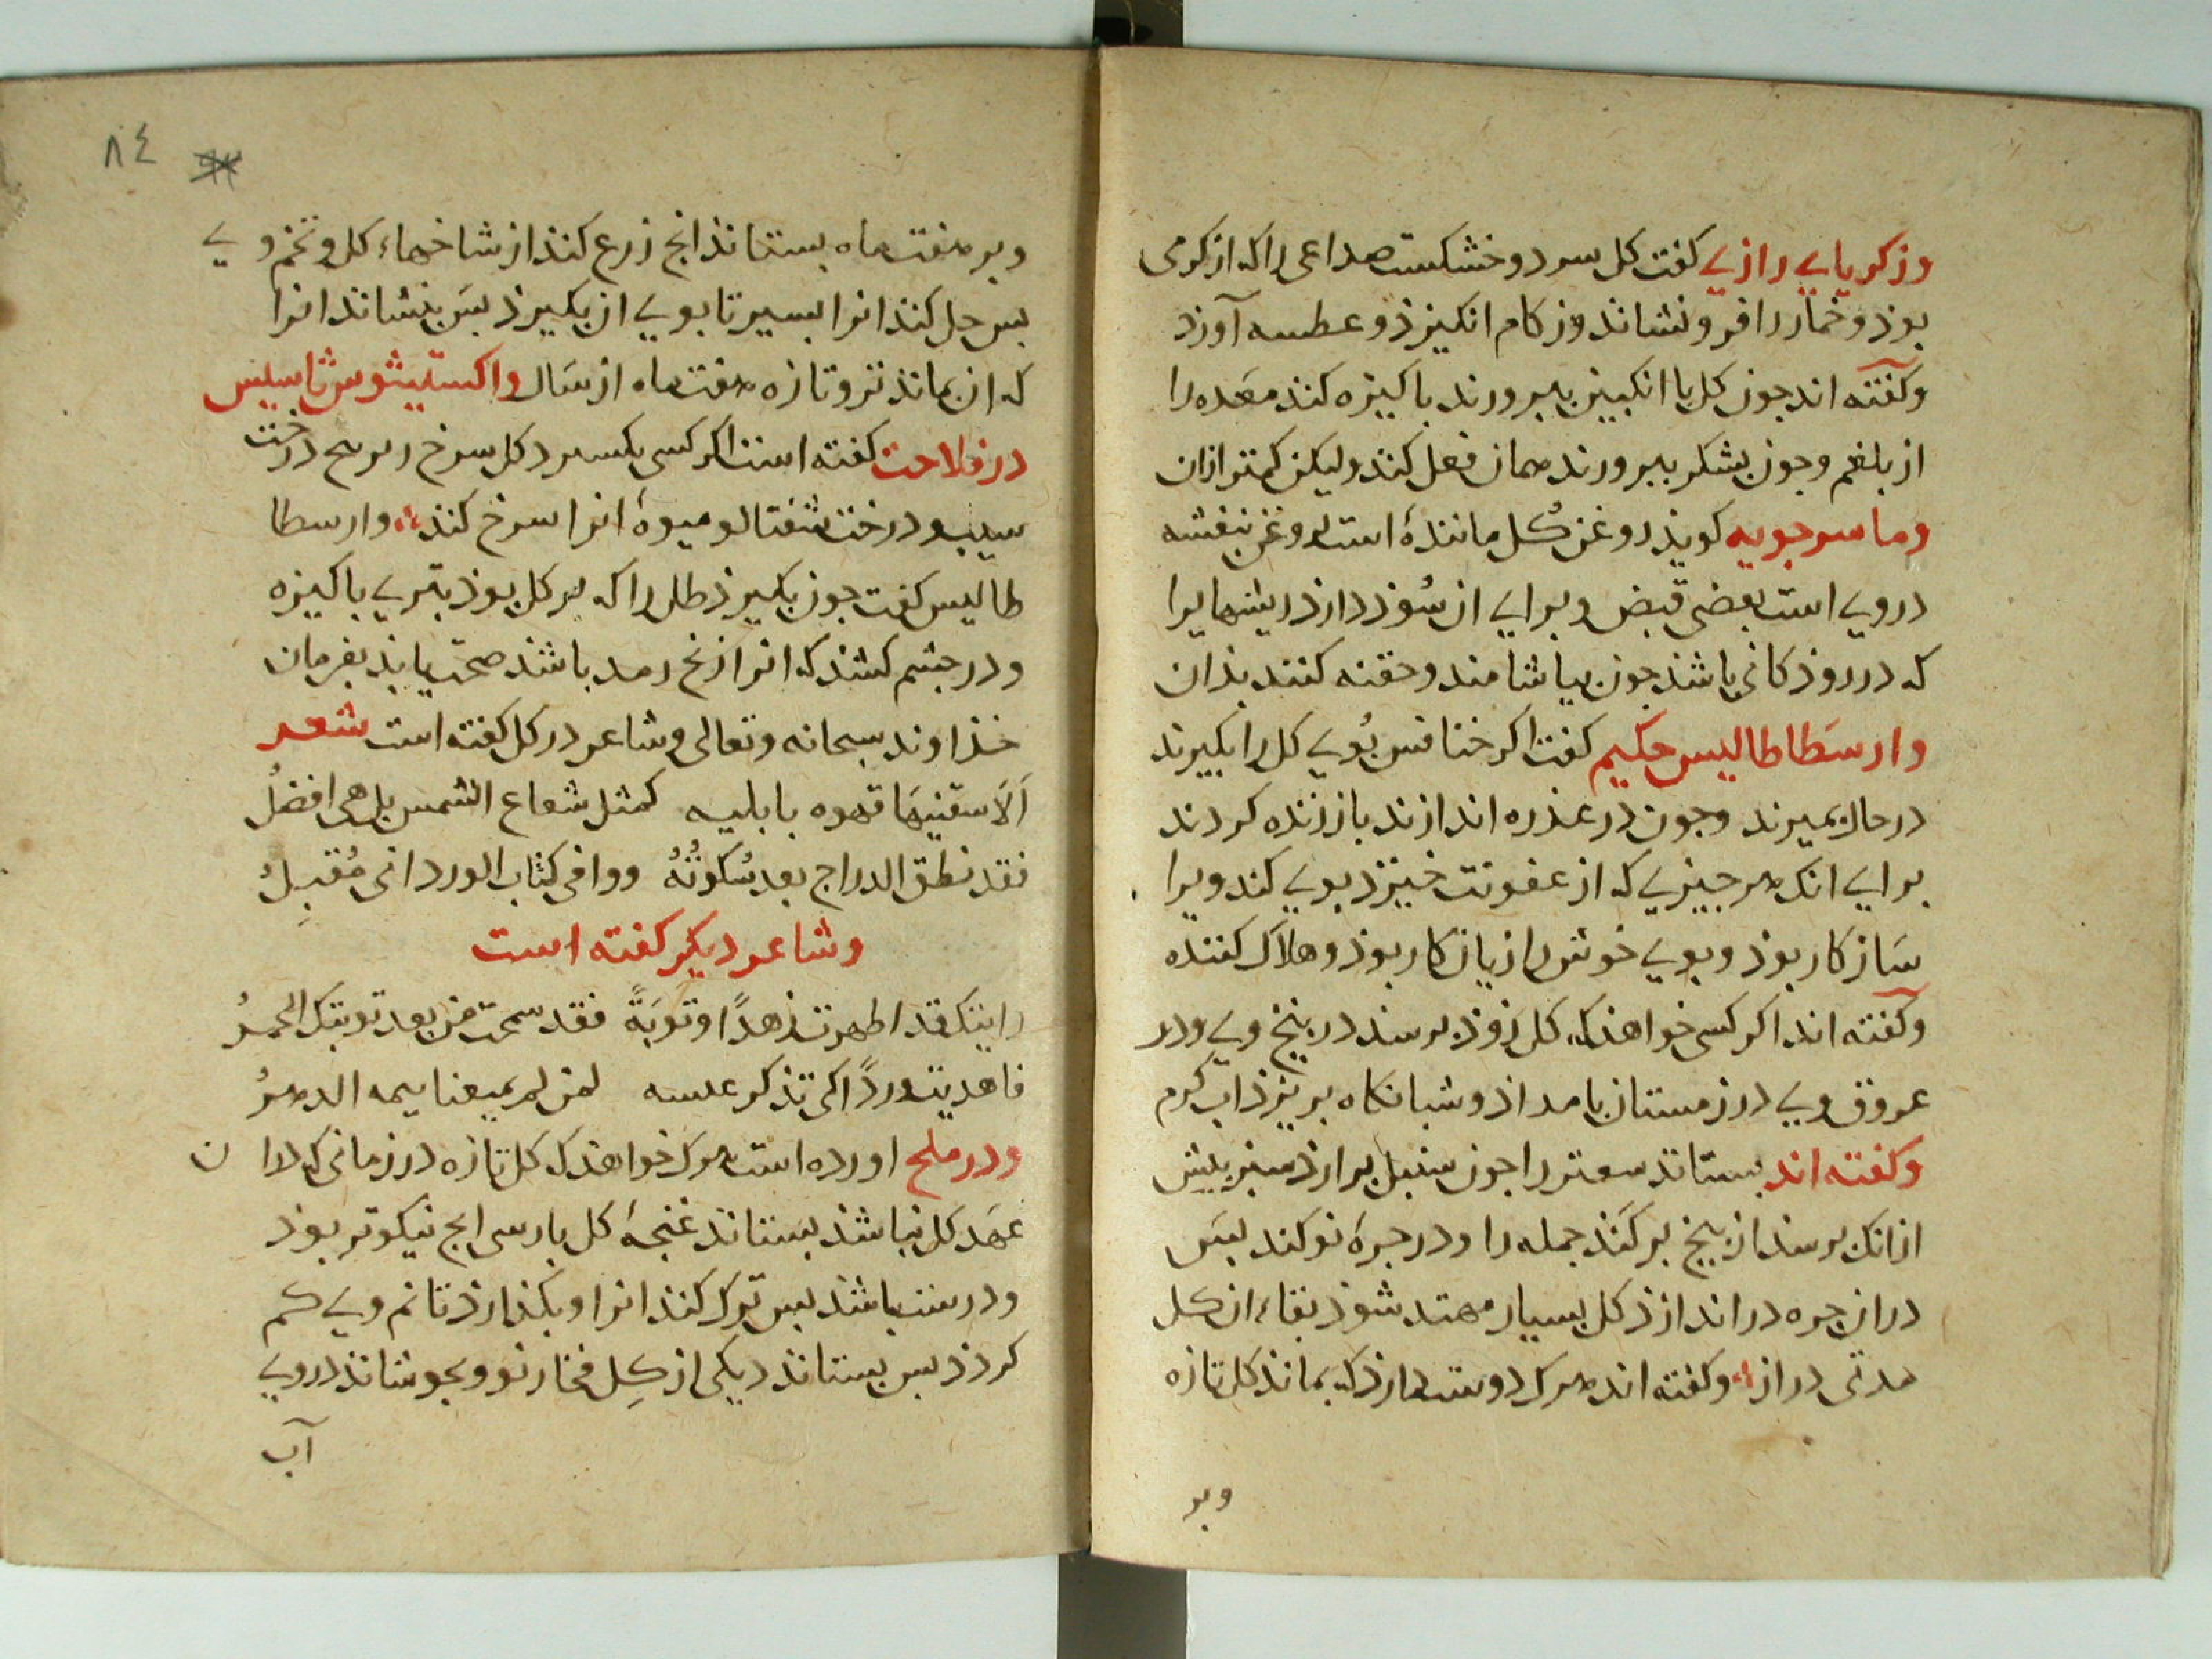 وزکریاي رازي کفت کل سرد و خشکست صداعی را که از کرمی
بوذ و خمار را فرو نشاند و زکام انکیزذ و عطسه آورد
و کفته اند جون کل با انکبین ببرورند باکیزه کند معده را
از بلغم و جون بشکر ببرورند همان فعل کند ولیکن کمتر ازان
وماسرجویه کویذ روغن کل مانندهٔ است بروغن بنفشه
دروي است بعضی قبض و براي ان سوذ دارذ ریشهایرا
که در روذکانی باشذ جون بیاشامند و حقنه کنند بذان
وارسطاطالیس حکیم کفت اکر خنافس بوي کل را بکیرند
در حال بمیرند و جون در عذره اندازند باز زنده کردند
براي انک هر جیزي که از عفونت خیزذ بوي کند ویرا
سازکار بوذ و بوي خوش را زیان کار بوذ و هلاک کننده
و کفته اند اکر کسی خواهذ که کل زوذ برسد در بیخ وي و در
عروق وي در زمستان بامداذ و شبانکاه بریزذ اب کرم
و کفته اند بستاند سعتر را جون سنبل برارذ سبز بیش
ازانک برسد از بیخ برکند جمله را و در جرهٔ نو کند بس
دران جره در اندازذ کل بسیار مهتد شوذ بقاء ان کل
مدتی دراز و کفته اند هرک دوست دارذ که بماند کل تازه
وبر
٨٤
وبر هفت ماه بستاند انج زرع کنند از شاخهاء کل و تخم وي
بس حل کند انرا بسیر تا بوي ان بکیرذ بس بنشاند انرا
که ان بماند تر و تازه هفت ماه از سال واکستیثوس ثاسیس
در فلاحت کفته است اکر کسی کل سرخ در درخت
سیب و درخت شفتالو میوهٔ انرا سرخ کند وارسطا
طالیس کفت جون بکیرذ طل را که بر کل بوذ بتري باکیزه
و در جشم کشند که انرا از نخ رمد باشذ صحت یابذ بفرمان
خذاوند سبحانه وتعالی و شاعر در کل کفته است شعر
ألا سقنیها قهوه بابلیه کمثل شعاع الشمس بل هی افضل
فقد نطق الدراج بعد سکوته ووافی کتاب الورد انی مقبل
وشاعر دیکر کفته است
رایتک قد اظهرت زهدًا وتوبةً فقد سمحت من بعد توبتک الخمر
فاهدیت وردًا کی تذکر لمن لم یمتعنا الدهر
ودر ملح اورده است هرک خواهذ که کل تازه در زمانی که
عهد کل نباشذ بستاند غنجهٔ کل بارسی انج نیکوتر بوذ
و درست باشذ بس ترک کند انرا و بکذارذ تا نم وي کم
کردذ بس بستاند دیکی از کل فخار نو و بجوشاند دروي
آب